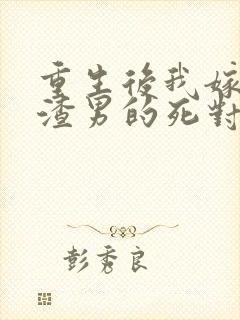 重生後我嫁
渣男的死對
彭秀良